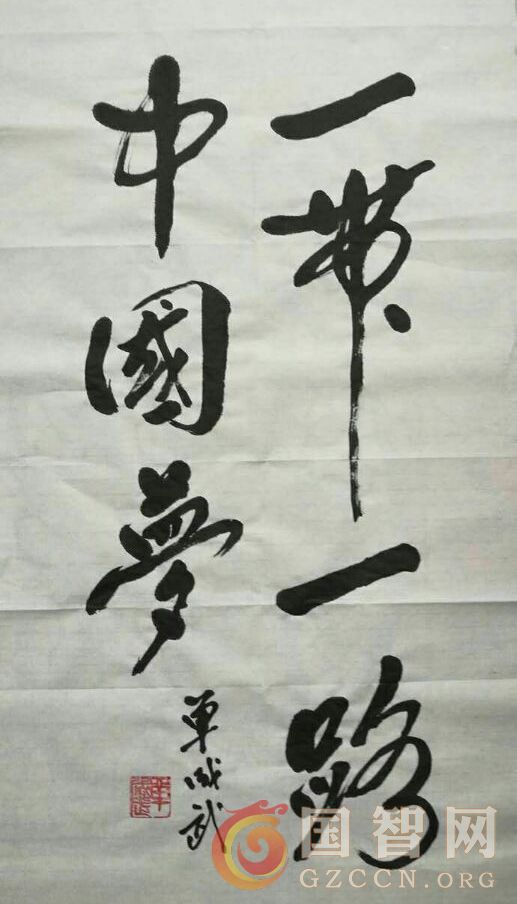 一帶一路
中國夢
單成武
国智网
GZCCN.ORG